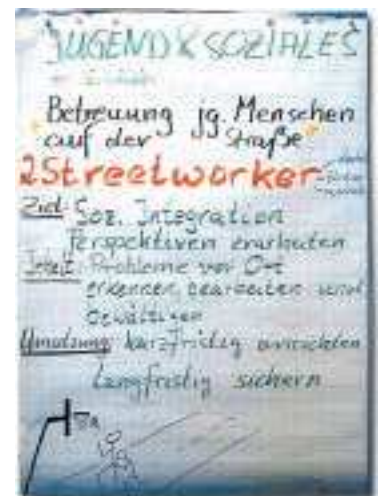 JUGEND & SOZIALES
Betreuung jg. Menschen
auf der Straße
2 Streetworker
Ziel: Soz. Integration
Perspektiven erarbeiten
Inhalt: Probleme vor Ort
erkennen, bearbeiten und
bewältigen
Umsetzung: kurzfristig einrichten
langfristig sichern